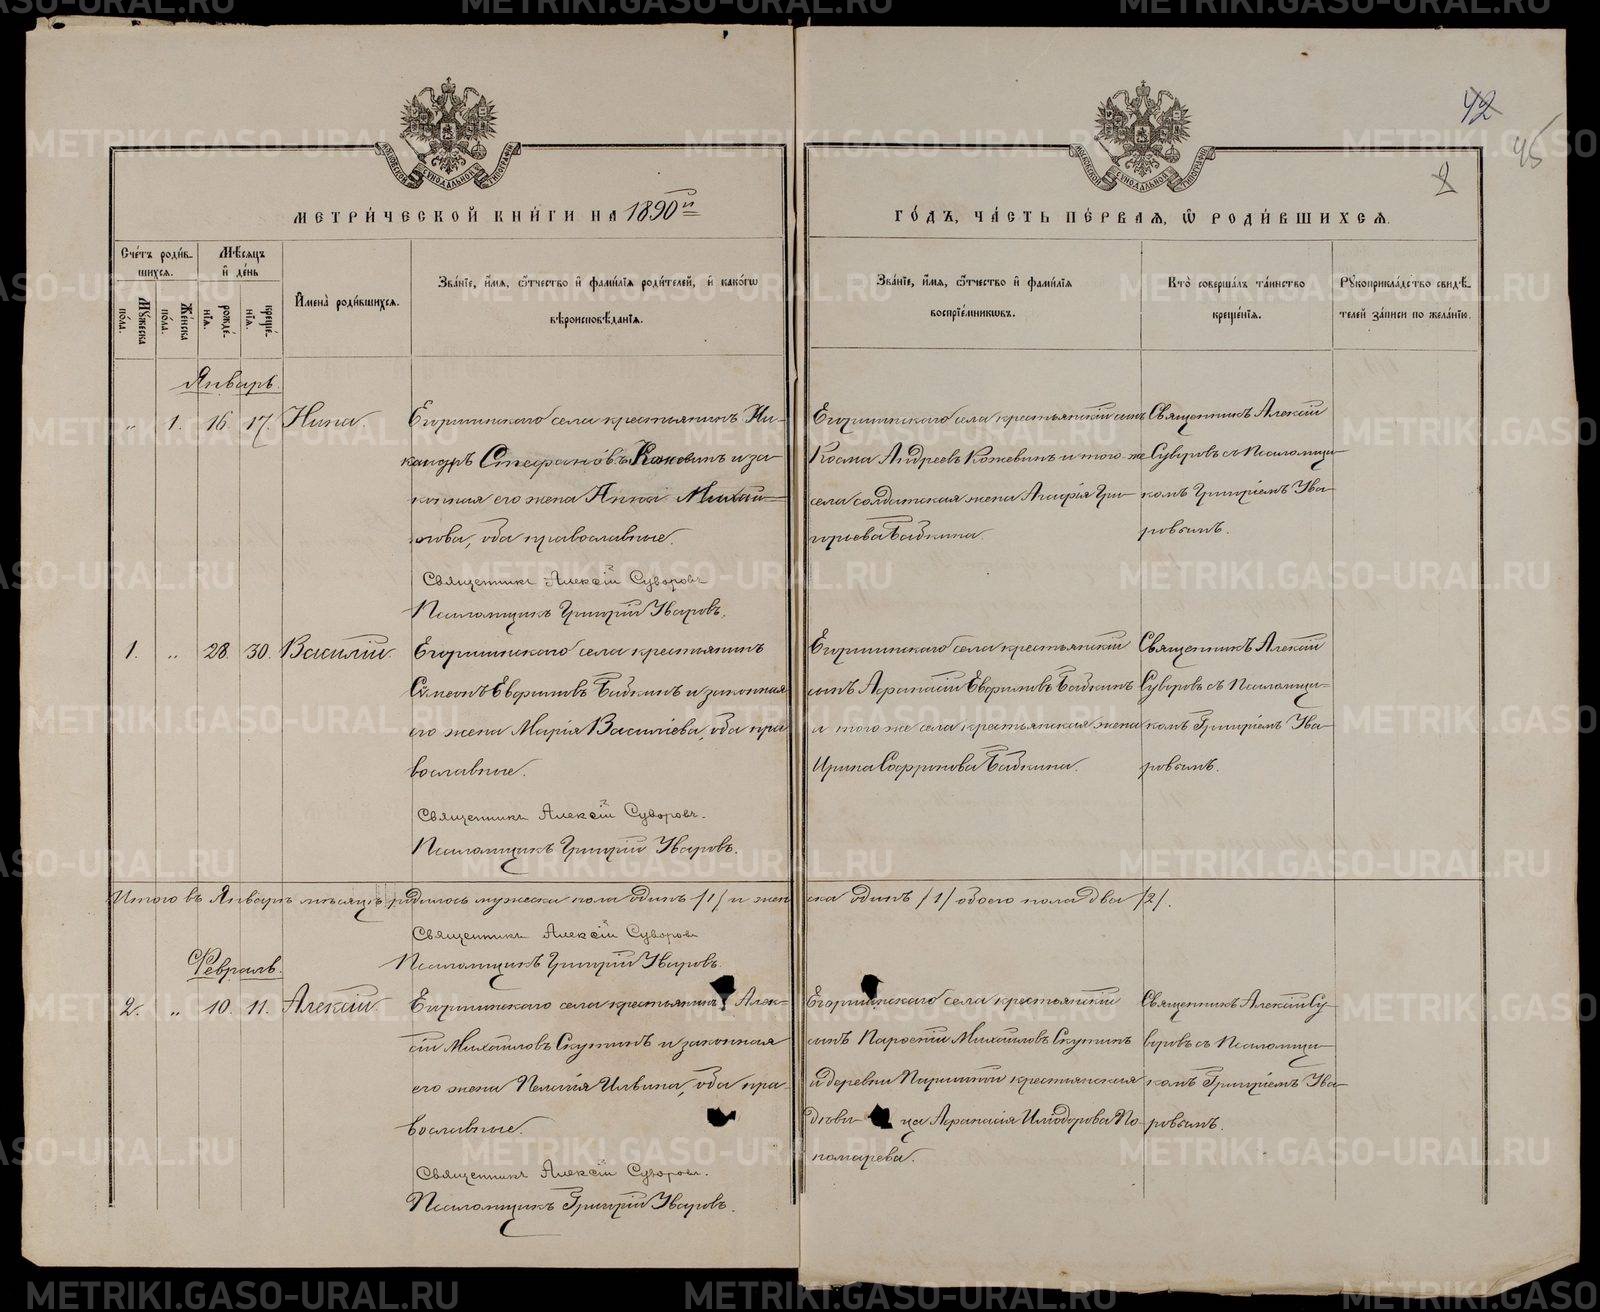 42
45
2
МОСКОВСКОЙ СѴНОДАЛЬНОЙ ТИПОГРАФІИ
МОСКОВСКОЙ СѴНОДАЛЬНОЙ ТИПОГРАФІИ
МЕТРИ́ЧЕСКОЙ КНИ́ГИ НА 1890й
ГО́ДЪ, ЧА́СТЬ ПЕ́РВАЯ, Ѡ РОДИ́ВШИХСЯ.
Сче́тъ роди́в-
шихся.
Мꙋ́жеска по́ла.
Же́нска по́ла.
Мѣ́сяцъ
и҆ де́нь
рожде́-
нїя.
креще́-
нїя.
И҆мена̀ роди́вшихся.
Зва́нїе, и҆́мя, ѻ҆́тчество и҆ фами́лїя роди́телей, и҆ како́гѡ
вѣроисповѣ́данїя.
Зва́нїе, и҆́мя, ѻ҆́тчество и҆ фами́лїя
воспрїе́мникѡвъ.
Кто̀ соверша́лъ та́инство
креще́нїя.
Рꙋкоприкла́дство свидѣ́-
телей за́писи по жела́нїю.
Январь.
„ 1. 16. 17. Нина.
Егоршинскаго села крестьянинъ Ни-
кандръ Стефановъ Кожевинъ и за-
конная его жена Анна Михаи-
лова, оба православные.
Священникъ Алексій Суворовъ
Псаломщикъ Григорій Уваровъ.
Егоршинскаго села крестьянскій сынъ
Косма Андреевъ Кожевинъ и того-же
села солдатская жена Агафія Гри-
горьева Бабкина.
Священникъ Алексій
Суворовъ съ Псаломщи-
комъ Григоріемъ Ува-
ровымъ.
1. „ 28. 30. Василій.
Егоршинскаго села крестьянинъ
Сѵмеонъ Евфимовъ Бабкинъ и законная
его жена Марія Васильева, оба пра-
вославные.
Священникъ Алексій Суворовъ.
Псаломщикъ Григорій Уваровъ.
Егоршинскаго села крестьянскій
сынъ Афанасій Евфимовъ Бабкинъ
и того же села крестьянская жена
Ирина Софронова Бабкина.
Священникъ Алексій
Суворовъ съ Псаломщи-
комъ Григоріемъ Ува-
ровымъ.
Итого въ Январѣ мѣсяцѣ родилось мужеска пола одинъ /1/ и жен
ска одинъ /1/ обоего пола два /2/.
Священникъ Алексій Суворовъ
Псаломщикъ Григорій Уваровъ.
Февраль.
2. „ 10. 11. Алексій.
Егоршинскаго села крестьянинъ Алек-
сій Михайловъ Скутинъ и законная
его жена Пелагія Ильина, оба пра-
вославные.
Священникъ Алексій Суворовъ.
Псаломщикъ Григорій Уваровъ.
Егоршинскаго села крестьянскій
сынъ Михайловъ Скутинъ
и деревни крестьянская
дѣви ца Афанасія Илиодорова По-
номарева.
Священникъ Алексій Су-
воровъ съ Псаломщи-
комъ Григоріемъ Ува-
ровымъ.
METRIKI.GASO-URAL.RU